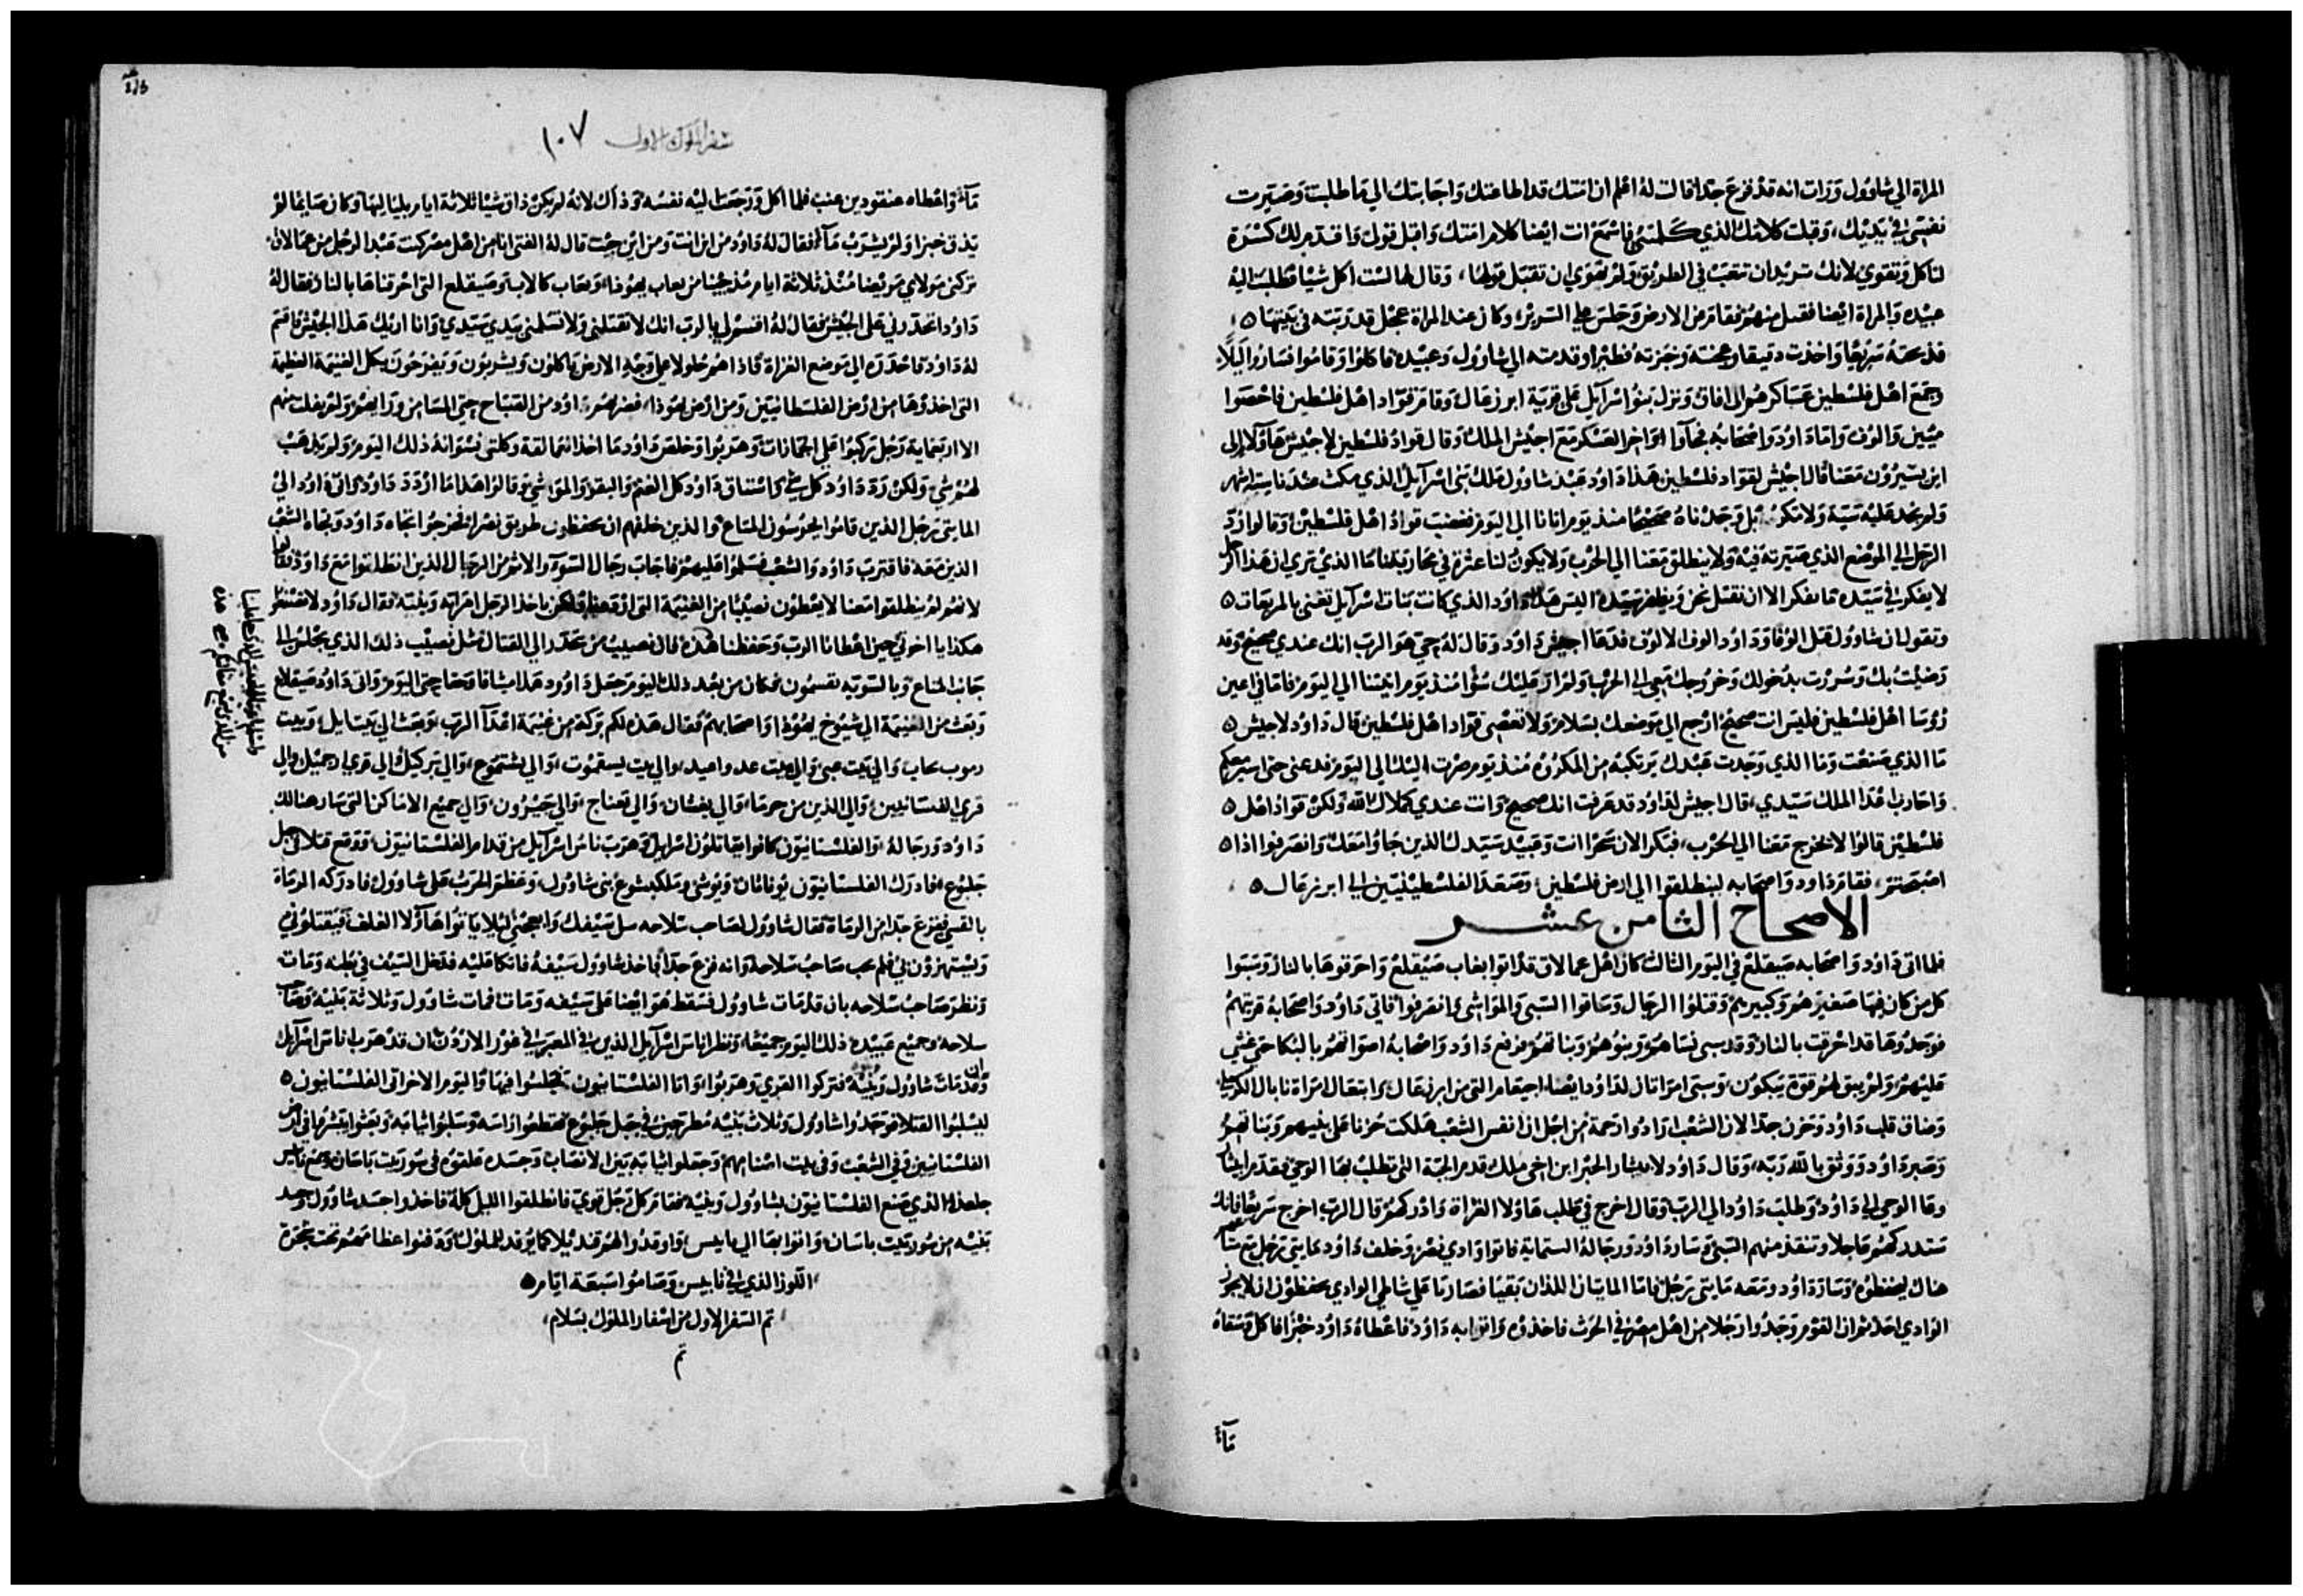 المراة الي شاوول ورات انه قد فزع جدا قالت له اعلم ان امتك قد اطاعتك واجابتك الي ما طلبت وصيرت
نفسي في يديك وقبلت كلامك الذي كلمتني فاسمع انت ايضا كلام امتك واقبل قولي واقدم لك كسرة
لتاكل وتقوي لانك تريد ان تتعب في الطريق ولم يهوي ان تقبل قولها وقال لها لست اكل شيا فطلبت اليه
عبيده والمراة ايضا فقبل منهم فقام من الارض وجلس علي السرير وكان عند المراة عجل قد ربته في بيتها
فذبحته سريعا واخذت دقيقا وعجنته وخبزته فطيرا وقدمته الي شاوول وعبيده فاكلوا وقاموا فساروا ليلا
وجمع اهل فلسطين عساكرهم الي افاق ونزل بنو اسرآيل علي قرية ابرزعال وقام قواد اهل فلسطين فاحصوا
ميين والوف واما داود واصحابه فجآوا اواخر العسكر مع اجيش الملك وقال قواد فلسطين لاجيش هآولا الي
اين يسيرون معنا قال اجيش لقواد فلسطين هذا داود عبد شاوول ملك بني اسرآيل الذي مكث عندنا سنة اشهر
ولم نجد عليه سية ولا نكر بل وجدناه صحيحا منذ يوم اتانا الي اليوم فغضبت قواد اهل فلسطين وقالوا رد
الرجل الي الموضع الذي صيرته فيه ولا ينطلق معنا الي الحرب ولا يكون لنا عثرة في محاربتنا ما الذي تري ان هذا الرجل
لا يفكر في سيده ما يفكر الا ان نقتل نحن ويظفر سيده اليس هذا داود الذي كانت بنات اسرآيل تغني بالمربعات
وتقول ان شاوول قتل الوفا وداود الوف الالوف فدعا اجيش داود وقال له حي هو الرب انك عندي صحيح وقد
رضيت بك وسررت بدخولك وخروجك معي الي الحرب ولم ار عليك سوا منذ يوم اتيتنا الي اليوم فاما في اعين
روسا اهل فلسطين فليس انت صحيح ارجع الي موضعك بسلام ولا تغضب قواد اهل فلسطين قال داود لاجيش
ما الذي صنعت وما الذي وجدت عبدك يرتكبه من المكروه منذ يوم صرت اليك الي اليوم فدعني حتي اسير معكم
واحارب اعدا الملك سيدي قال اجيش لداود قد عرفت انك صحيح وانت عندي كملاك الله ولكن قواد اهل
فلسطين قالوا لا يخرج معنا الي الحرب فبكر الان سحرا انت وعبيد سيدك الذين جاوا معك وانصرفوا اذا
اصبحتم فقام داود واصحابه لينطلقوا الي ارض فلسطين وصعد الفلسطينيين الي ابرزعال
الاصحاح الثامن عشر
فلما اتي داود واصحابه صيقلع في اليوم الثالث كان اهل عمالاق قد اتوا بغاب صيقلع واحرقوها بالنار وسبوا
كل من كان فيها صغيرهم وكبيرهم وقتلوا الرجال وساقوا السبي والمواشي وانصرفوا فاتي داود واصحابه قريتهم
فوجدوها قد احرقت بالنار وقد سبي نساهم وبنوهم وبناتهم فرفع داود واصحابه اصواتهم بالبكا حتي غشي
عليهم ولم يبق لهم قوة يبكون وسبي امراتان لداود ايضا احيعام التي من ابرزعال وابتعال امراة نابال الكرملي
وضاق قلب داود وحزن جدا لان الشعب ارادوا رجمه من اجل ان انفس الشعب هلكت حزنا علي بنيهم وبناتهم
وصبر داود ووثق بالله ربه وقال داود لابيثار الحبر ابن اخي ملك قدم الجبة التي تطلب بها الوحي فقدم ابيثار
وعا الوحي الي داود وطلب داود الي الرب وقال اخرج في طلب هاولا الغزاة وادركهم قال الرب اخرج سريعا فانك
ستدركهم عاجلا وتنقذ منهم السبي وسار داود ورجاله الستماية فاتوا وادي بصر وخلف داود مايتي رجل مع متاعهم
هناك يحفظوه وسار داود ومعه مايتي رجل فاما المايتان اللذان بقيا فصارما علي شاطي الوادي يحفظون ان لا يجوز
الوادي احد ثم ان القوم وجدوا رجلا من اهل مصر في الحرث فاخذوه واتوا به داود فاعطاه داود خبزا فاكل وسقاه
مآءً
سفر الملوك الاول ١٠٧
مآء واعطاه عنقودين عنب فلما اكل ورجعت اليه نفسه وذاك لانه لم يكن ذاق شيا ثلاثة ايام بلياليها وكان صايما لم
يذق خبزا ولم يشرب مآء فقال له داود من اين انت ومن اين جيت قال له الفتي انا من اهل مصر كنت عبد الرجل من عمالاق
تركني مولاي مريضا منذ ثلاثة ايام مذ جينا من بعاب يهوذا وبعاب كالاب وصيقلع التي احرقناها بالنار فقال له
داود اتحدرني علي الجيش فقال له اقسم لي بالرب انك لا تقتلني ولا تسلمني بيدي سيدي وانا اريك هذا الجيش فاقسم
له داود فاحدره الي موضع الغزاة فاذا هم حلولا علي وجه الارض ياكلون ويشربون ويفرحون بكل الغنيمة العظيمة
التي اخذوها من ارض الفلسطانيين ومن ارض يهوذا فضربهم داود من الصباح حتي المسا من ورايهم ولم يفلت منهم
الا اربعماية رجل ركبوا علي الجمازات وهربوا وخلص داود ما اخذ العمالقة وكلتي نسوانه ذلك اليوم ولم يذهب
لهم شي ولكن رد داود كل شي واستاق داود كل الغنم والبقر والمواشي وقالوا هذا ما ارد داود واتي داود الي
المايتي رجل الذين قاموا ليحرسون المتاع والذين خلفهم ان يحفظون طريق بصر فخرجوا تجاه داود وتجاه الشعب
الذين معه فاقترب داود والشعب فسلموا عليهم فاجابت رجال السوء والاثم من الرجال الذين انطلقوا مع داود وقالوا
لانهم لم ينطلقوا معنا لا يعطون نصيبا من الغنيمة التي اوقعنا ولكن ياخذ الرجل امراته وبنيه فقال داود لا تصنعوا
هكذا يا اخوتي حين اعطانا الرب وحفظنا هذه فان نصيب من تحدر الي القتال مثل نصيب ذلك الذي يجلس الي
جانب المتاع وبالسوية تقسمون فكان من بعد ذلك اليوم جعل داود هذا ميثاقا وعهدا حتي اليوم واتي داود صيقلاع
وبعث من الغنيمة الي شيوخ يهوذا واصحابهم فقال هذه لكم بركة من غنيمة اعدآ الرب وبعث الي بيتايل وبيت
قري الفنسانيين والي الذين من حرما والي يفشان والي تعناج والي حبرون والي جميع الاماكن التي سار هنالك
داود ورجاله والفلستانيون كانوا يقاتلون اسرايل وهرب ناس اسرآيل من قدام الفلستانيون ووقع قتلا في جبل
جلبوع فادرك الفلستانيون يوناثان ويوشي وملكيشوع بني شاوول وعظم الحرب علي شاوول فادركه الرماة
بالقسي ففزع جدا من الرماة فقال شاوول لصاحب سلاحه سل سيفك وابعجني ليلا ياتوا هاولا الغلف فيقتلوني
ويستهزون بي فلم يحب صاحب سلاحه وانه فزع جدا فاخذ شاوول سيفه فاتكا عليه فدخل السيف في بطنه ومات
ونظر صاحب سلاحه بان قد مات شاوول فسقط هو ايضا علي سيفه ومات فمات شاوول وثلاثة بنيه وصاحب
سلاحه وجميع عبيده ذلك اليوم جميعا ونظر اناس اسرآيل الذين في المعبر في غور الاردن ان قد هرب اناس اسرآيل
وقد مات شاوول وبنيه فتركوا القري وهربوا واتا الفلستانيون فجلسوا فيها واليوم الاخر اتي الفلستانيون
ليسلبوا القتلا فوجدوا شاوول وثلاث بنيه مطرحين في جبل جلبوع فقطعوا راسه وسلبوا ثيابه وبعثوا يبشرها في ارض
الفلستانيين وفي الشعب وفي بيت اصنامهم وجعلوا ثيابه بين الانصاب وجسده علقوه في سور بيت باسان وسمع نابيس
جلعاد الذي صنع الفلستانيون بشاوول وبنيه فقام كل رجل قوي فانطلقوا الليل كله فاخذوا جسد شاوول وجسد
بنيه من سور بيت باسان واتوا بها الي يابيس واوقدوا لهم قنديلا كما يوقد للملوك ودفنوا عظامهم تحت شجرة
اللوز الذي في نابيس وصاموا سبعة ايام
تم السفر الاول من اسفار الملوك بسلام
تم